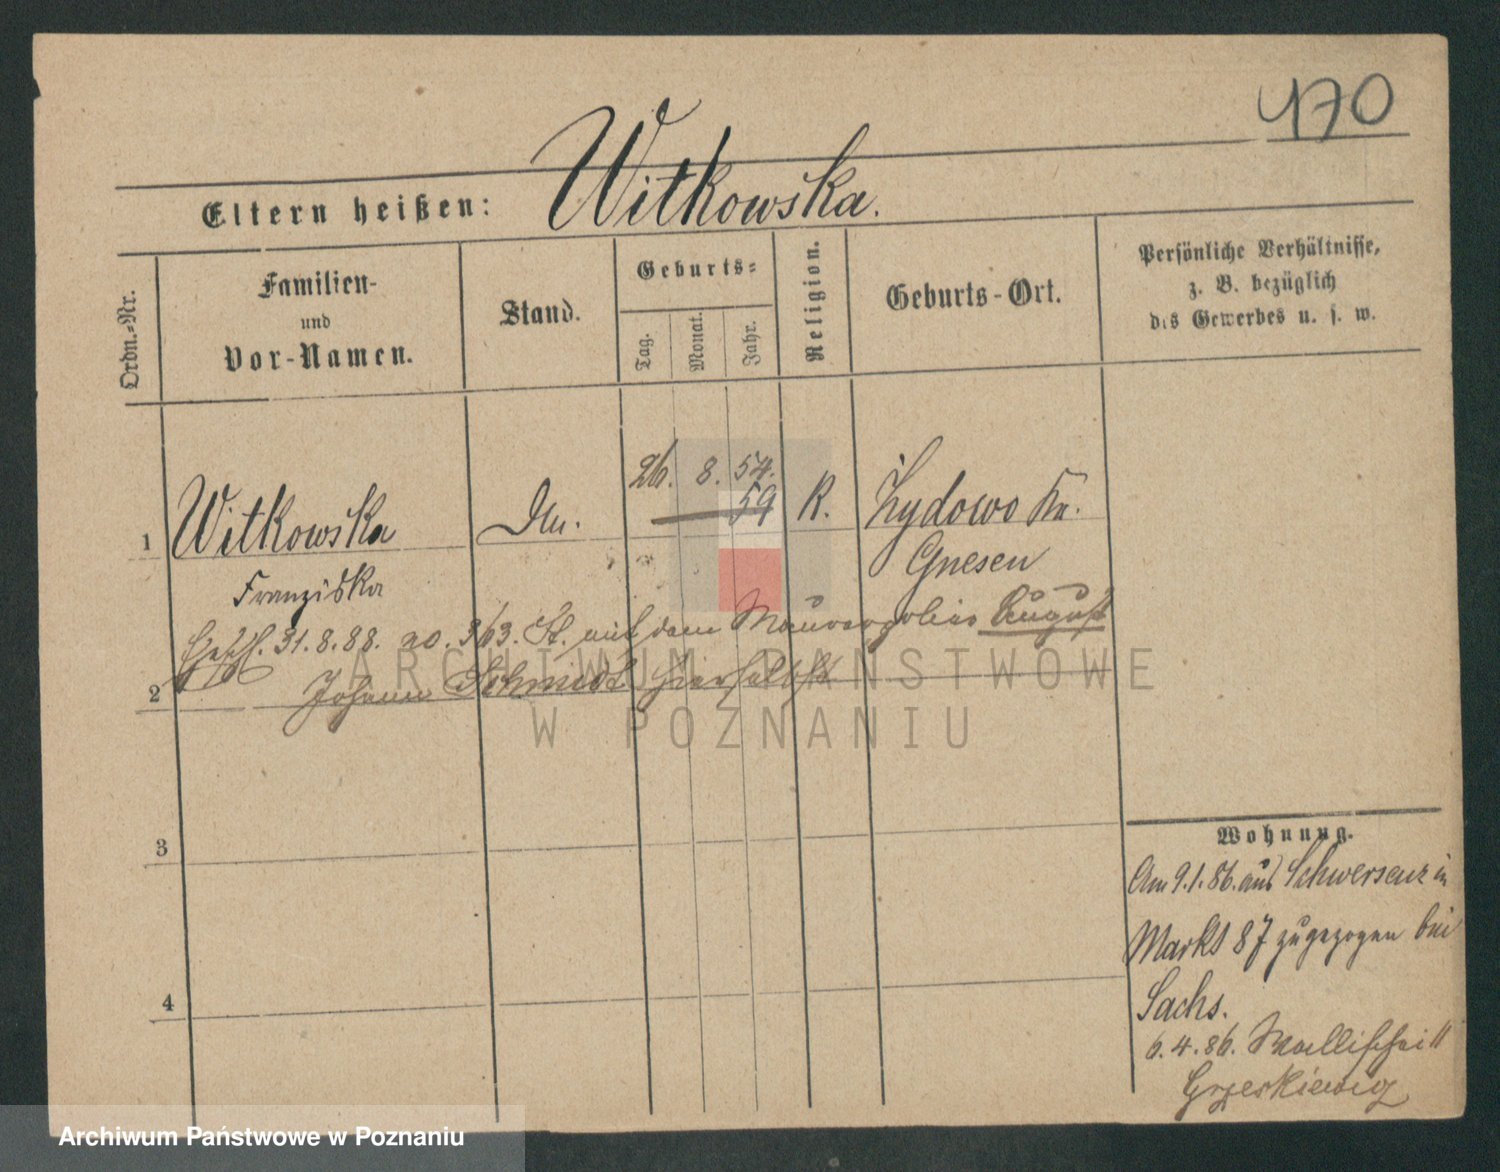 470
Eltern heißen: Witkowska.
Ordn.-Nr.
Familien-
und
Vor-Namen.
Stand.
Geburts-
Tag.
Monat.
Jahr.
Religion.
Geburts-Ort.
Persönliche Verhältnisse,
z. B. bezüglich
des Gewerbes u. s. w.
26. 8. 54.
1 Witkowska 59 K. Żydowo Kr.
Franziska Gnesen
31.8.88. no. 363. St. mit dem August
2 Johann Schmidt hierselbst
ARCHIWUM PAŃSTWOWE
W POZNANIU
3
4
Wohnung.
Am 9.1.86. aus Schwersenz in
Markt 87 zugezogen bei
Sachs.
6.4.86. Wallischei 11
Grzeskiewicz
Archiwum Państwowe w Poznaniu